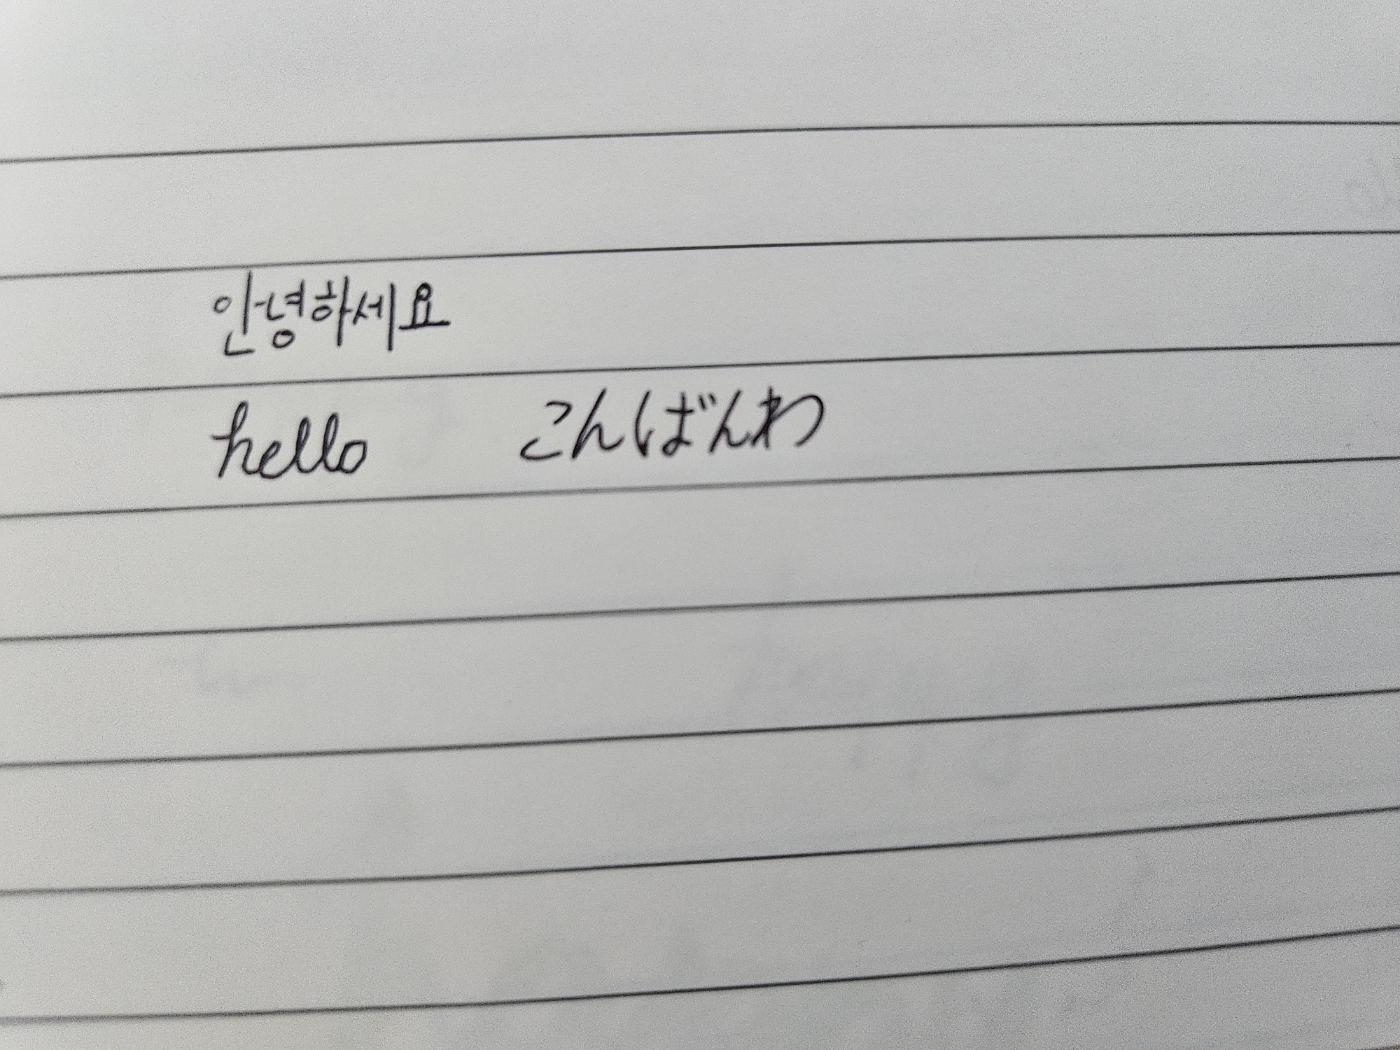 안녕하세요
hello こんばんわ